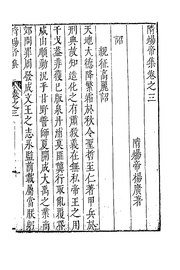 隋煬帝集卷之三
隋煬帝楊廣著
詔
親征高麗詔
天地大德降繁霜於秋令聖哲至仁著甲兵於
刑典故知造化之有肅殺義在無私帝王之用
干戈蓋非獲已版泉丹浦莫匪龔行取亂覆昏
咸由順動況乎甘野誓師夏開承大禹之業商
郊問罪周發成文王之志永監前載屬當朕躬
隋煬帝集 卷之三